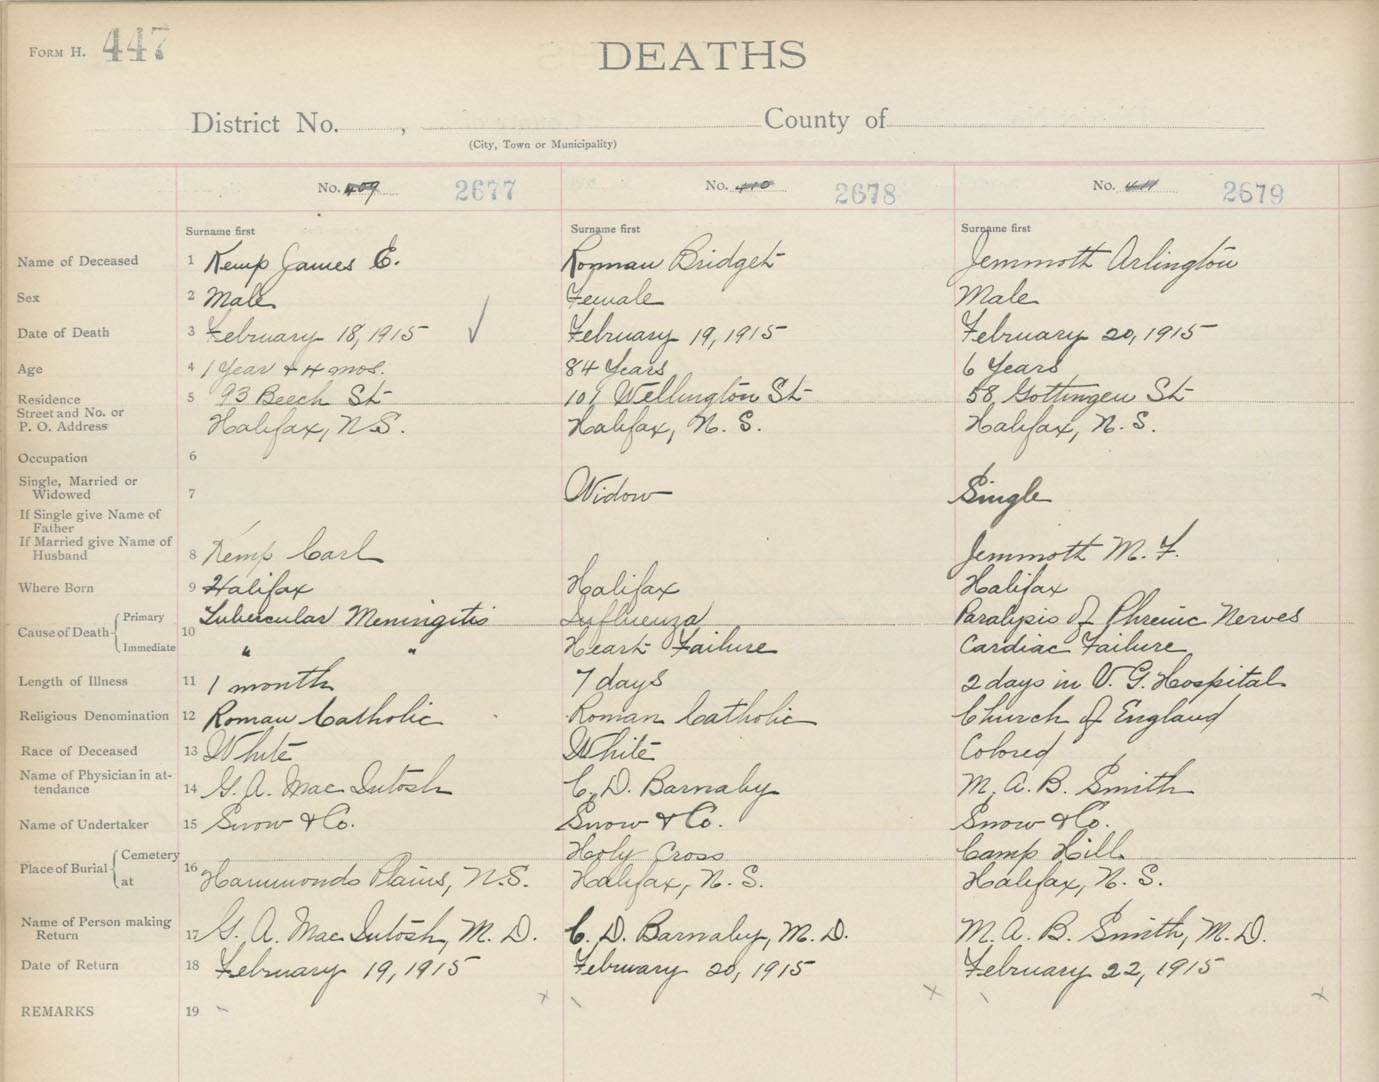 FORM H. 447
DEATHS
District No. , County of
(City, Town or Municipality)
No. 409 2677 No. 410 2678 No. 411 2679
Surname first Surname first Surname first
Name of Deceased 1 Kemp James E. Roman Bridget Jemmoth Arlington
Sex 2 Male Female Male
Date of Death 3 February 18, 1915 ✓ February 19, 1915 February 20, 1915
Age 4 1 Year + 4 mos. 84 Years 6 Years
Residence 5 93 Beech St 101 Wellington St 58 Gottingen St
Street and No. or
P. O. Address Halifax, N.S. Halifax, N. S. Halifax, N. S.
Occupation 6
Single, Married or
Widowed 7 Widow Single
If Single give Name of
Father
If Married give Name of
Husband 8 Kemp Carl Jemmoth M. F.
Where Born 9 Halifax Halifax Halifax
Cause of Death Primary 10 Tubercular Meningitis Influenza Paralipis of Phrenic Nerves
Immediate " " Heart Failure Cardiac Failure
Length of Illness 11 1 month 7 days 2 days in V. G. Hospital
Religious Denomination 12 Roman Catholic Roman Catholic Church of England
Race of Deceased 13 White White Colored
Name of Physician in at-
tendance 14 G. A. MacIntosh C. D. Barnaby M. A. B. Smith
Name of Undertaker 15 Snow & Co. Snow & Co. Snow & Co.
Place of Burial Cemetery 16 Holy Cross Camp Hill
at Hammonds Plains, N.S. Halifax, N. S. Halifax, N. S.
Name of Person making
Return 17 G. A. MacIntosh, M. D. C. D. Barnaby, M. D. M. A. B. Smith, M. D.
Date of Return 18 February 19, 1915 February 20, 1915 February 22, 1915
REMARKS 19